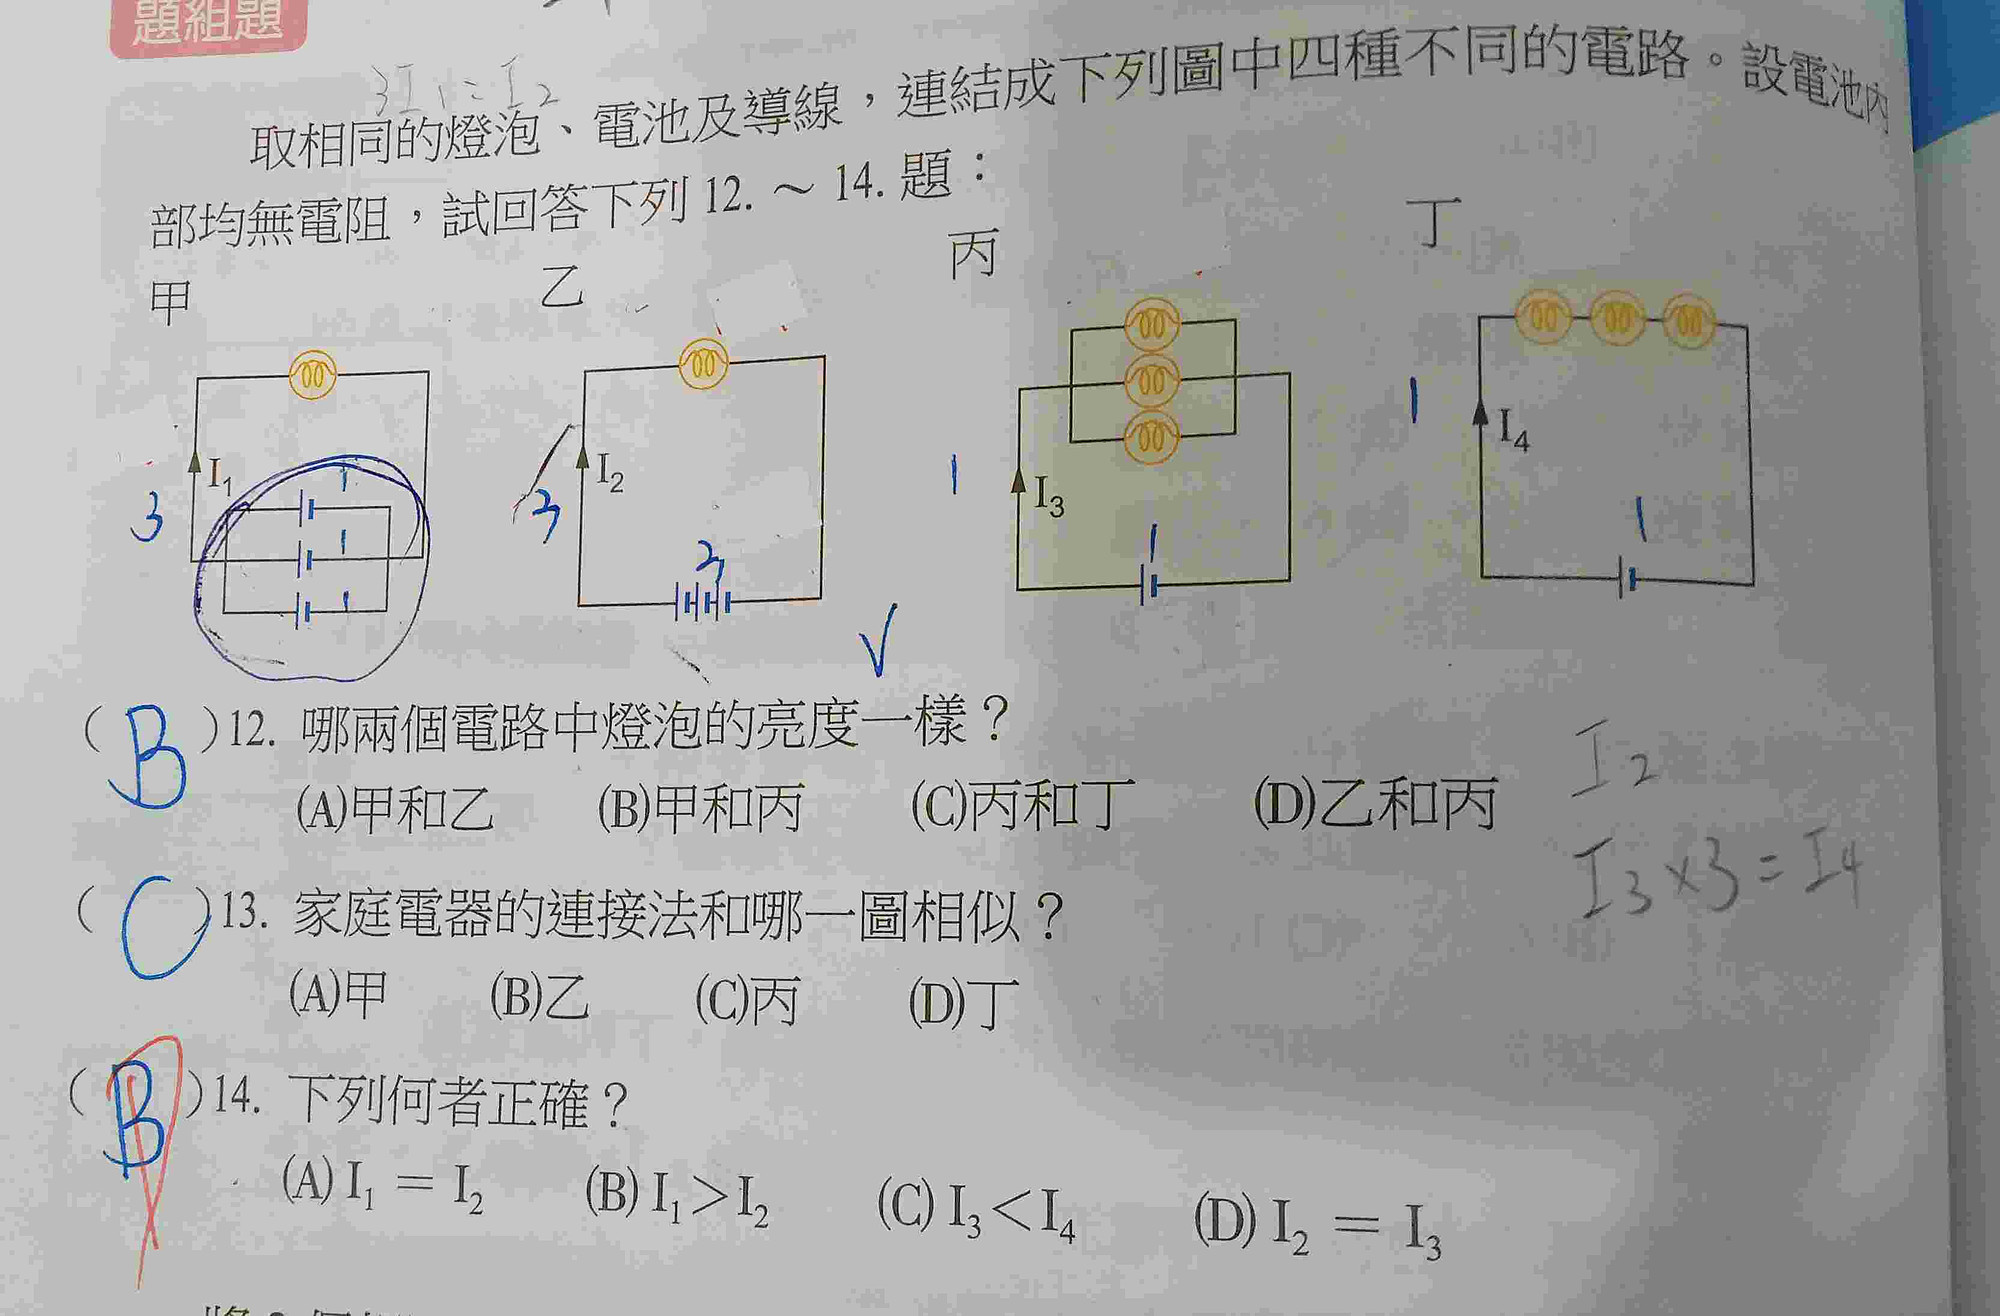 題組題
3I₁=I₂
取相同的燈泡、電池及導線，連結成下列圖中四種不同的電路。設電池內
部均無電阻，試回答下列12.～14.題：
甲
乙
丙
丁
I₁
3
1
1
1
I₂
3
3
I₃
1
1
I₄
1
1
(B)12. 哪兩個電路中燈泡的亮度一樣？
(A)甲和乙 (B)甲和丙 (C)丙和丁 (D)乙和丙
I₂
I₃×3=I₄
(C)13. 家庭電器的連接法和哪一圖相似？
(A)甲 (B)乙 (C)丙 (D)丁
(B)14. 下列何者正確？
(A) I₁ = I₂ (B) I₁>I₂ (C) I₃<I₄ (D) I₂ = I₃